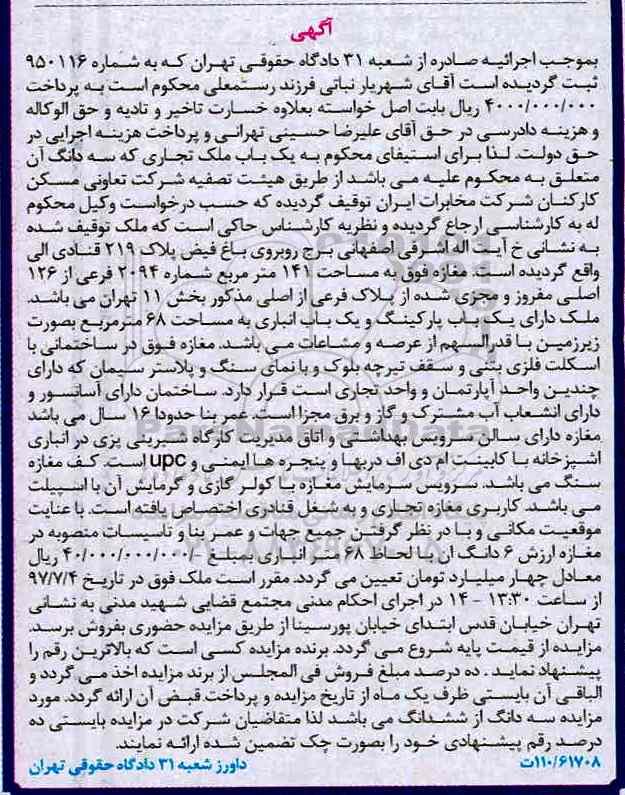 آگهی
بموجب اجرائیه صادره از شعبه ۳۱ دادگاه حقوقی تهران که به شماره ۹۵۰۱۱۶
ثبت گردیده است آقای شهریار نباتی فرزند رستمعلی محکوم است به پرداخت
۴۰۰۰/۰۰۰/۰۰۰ ریال بابت اصل خواسته بعلاوه خسارت تاخیر و تادیه و حق الوکاله
و هزینه دادرسی در حق آقای علیرضا حسینی تهرانی و پرداخت هزینه اجرایی در
حق دولت. لذا برای استیفای محکوم به یک باب ملک تجاری که سه دانگ آن
متعلق به محکوم علیه می باشد از طریق هیئت تصفیه شرکت تعاونی مسکن
کارکنان شرکت مخابرات ایران توقیف گردیده که حسب درخواست وکیل محکوم
له به کارشناسی ارجاع گردیده و نظریه کارشناس حاکی است که ملک توقیف شده
به نشانی خ آیت اله اشرفی اصفهانی برج روبروی باغ فیض پلاک ۲۱۹ قنادی الی
واقع گردیده است. مغازه فوق به مساحت ۱۴۱ متر مربع شماره ۲۰۹۴ فرعی از ۱۲۶
اصلی مفروز و مجزی شده از پلاک فرعی از اصلی مذکور بخش ۱۱ تهران می باشد.
ملک دارای یک باب پارکینگ و یک باب انباری به مساحت ۶۸ مترمربع بصورت
زیرزمین با قدرالسهم از عرصه و مشاعات می باشد. مغازه فوق در ساختمانی با
اسکلت فلزی بتنی و سقف تیرچه بلوک و با نمای سنگ و پلاستر سیمان که دارای
چندین واحد آپارتمان و واحد تجاری است قرار دارد. ساختمان دارای آسانسور و
دارای انشعاب آب مشترک و گاز و برق مجزا است. عمر بنا حدودا ۱۶ سال می باشد
مغازه دارای سالن سرویس بهداشتی و اتاق مدیریت کارگاه شیرینی پزی در انباری
اشپزخانه با کابینت ام دی اف دربها و پنجره ها ایمنی و upc است. کف مغازه
سنگ می باشد. سرویس سرمایش مغازه با کولر گازی و گرمایش آن با اسپیلت
می باشد. کاربری مغازه تجاری و به شغل قنادری اختصاص یافته است. با عنایت
موقعیت مکانی و با در نظر گرفتن جمیع جهات و عمر بنا و تاسیسات منصوبه در
مغازه ارزش ۶ دانگ آن با لحاظ ۶۸ متر انباری بمبلغ -/۴۰/۰۰۰/۰۰۰/۰۰۰ ریال
معادل چهار میلیارد تومان تعیین می گردد. مقرر است ملک فوق در تاریخ ۹۷/۷/۴
از ساعت ۱۳:۳۰ - ۱۴ در اجرای احکام مدنی مجتمع قضایی شهید مدنی به نشانی
تهران خیابان قدس ابتدای خیابان پورسینا از طریق مزایده حضوری بفروش برسد.
مزایده از قیمت پایه شروع می گردد. برنده مزایده کسی است که بالاترین رقم را
پیشنهاد نماید. ده درصد مبلغ فروش فی المجلس از برند مزایده اخذ می گردد و
الباقی آن بایستی ظرف یک ماه از تاریخ مزایده و پرداخت قبض آن ارائه گردد. مورد
مزایده سه دانگ از ششدانگ می باشد لذا متقاضیان شرکت در مزایده بایستی ده
درصد رقم پیشنهادی خود را بصورت چک تضمین شده ارائه نمایند.
۱۱۰/۶۱۷۰۸ت داورز شعبه ۳۱ دادگاه حقوقی تهران